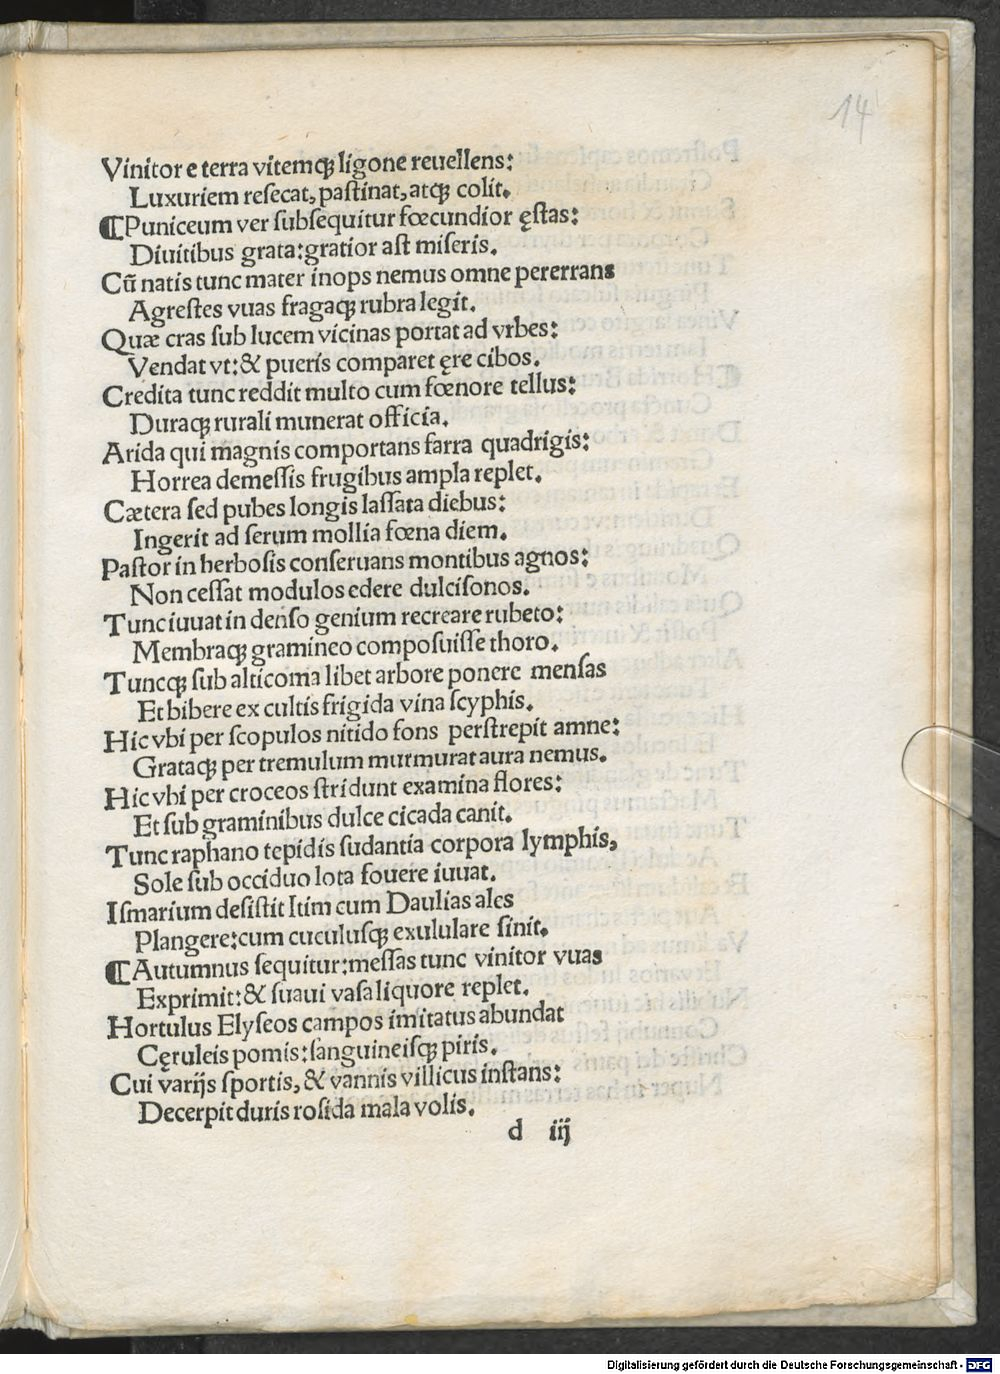 14
Vinitor e terra vitemqꝫ ligone reuellens:
Luxuriem reſecat, paſtinat, atqꝫ colit.
¶Puniceum ver ſubſequitur fœcundior ęſtas:
Diuitibus grata: gratior aſt miſeris.
Cū natis tunc mater inops nemus omne pererrans
Agreſtes vuas fragaqꝫ rubra legit.
Quæ cras ſub lucem vicinas portat ad vrbes:
Vendat vt: & pueris comparet ęre cibos.
Credita tunc reddit multo cum fœnore tellus:
Duraqꝫ rurali munerat officia.
Arida qui magnis comportans farra quadrigis:
Horrea demeſſis frugibus ampla replet.
Cætera ſed pubes longis laſſata diebus:
Ingerit ad ſerum mollia fœna diem.
Paſtor in herboſis conſeruans montibus agnos:
Non ceſſat modulos edere dulciſonos.
Tunc iuuat in denſo genium recreare rubeto:
Membraqꝫ gramineo compoſuiſſe thoro.
Tuncqꝫ ſub alticoma libet arbore ponere menſas
Et bibere ex cultis frigida vina ſcyphis.
Hic vbi per ſcopulos nitido fons perſtrepit amne:
Grataqꝫ per tremulum murmurat aura nemus.
Hic vbi per croceos ſtridunt examina flores:
Et ſub graminibus dulce cicada canit.
Tunc raphano tepidis ſudantia corpora lymphis,
Sole ſub occiduo lota fouere iuuat.
Iſmarium deſiſtit Itim cum Daulias ales
Plangere: cum cuculusqꝫ exululare ſinit.
¶Autumnus ſequitur: meſſas tunc vinitor vuas
Exprimit: & ſuaui vaſa liquore replet.
Hortulus Elyſeos campos imitatus abundat
Cęruleis pomis: ſanguineiſqꝫ piris.
Cui varijs ſportis, & vannis villicus inſtans:
Decerpit duris roſida mala volis.
d iij
Digitalisierung gefördert durch die Deutsche Forschungsgemeinschaft - DFG